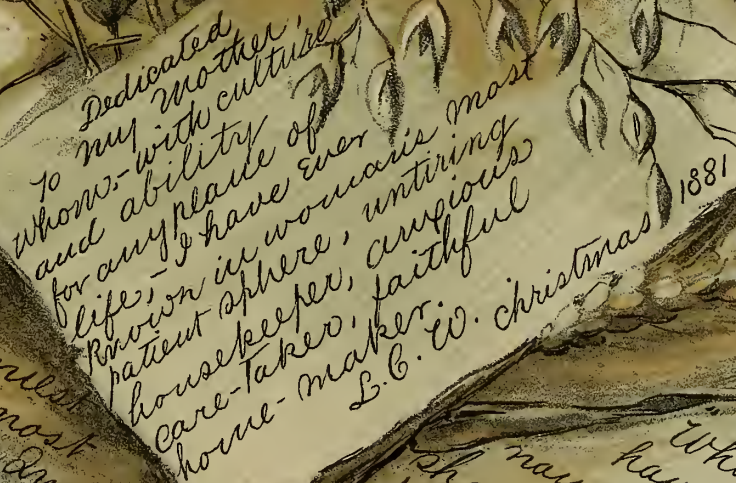 Dedicated
To my Mother,
whom,- with culture
and ability
for any plane of
life,- I have ever
known in woman's most
patient sphere, untiring
housekeeper, anxious
care-Taker, faithful
home-maker.
L.C.W. Christmas 1881
most